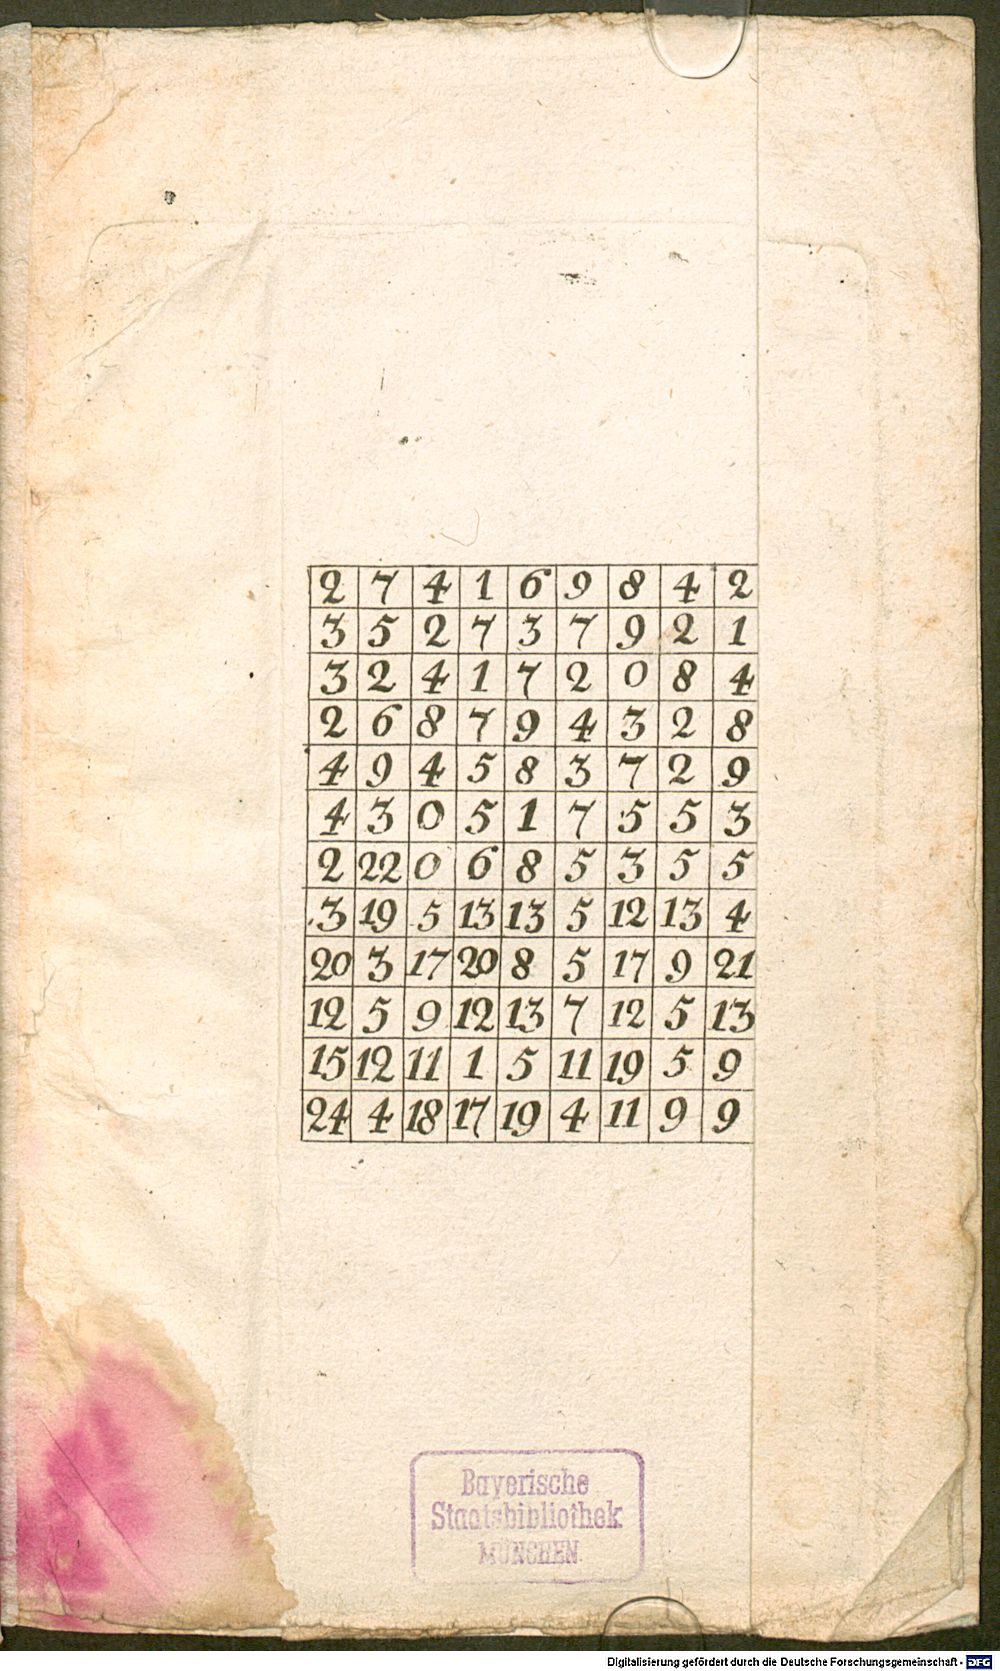 2 7 4 1 6 9 8 4 2
3 5 2 7 3 7 9 2 1
3 2 4 1 7 2 0 8 4
2 6 8 7 9 4 3 2 8
4 9 4 5 8 3 7 2 9
4 3 0 5 1 7 5 5 3
2 22 0 6 8 5 3 5 5
3 19 5 13 13 5 12 13 4
20 3 17 20 8 5 17 9 21
12 5 9 12 13 7 12 5 13
15 12 11 1 5 11 19 5 9
24 4 18 17 19 4 11 9 9
Bayerische
Staatsbibliothek
MÜNCHEN
Digitalisierung gefördert durch die Deutsche Forschungsgemeinschaft - DFG